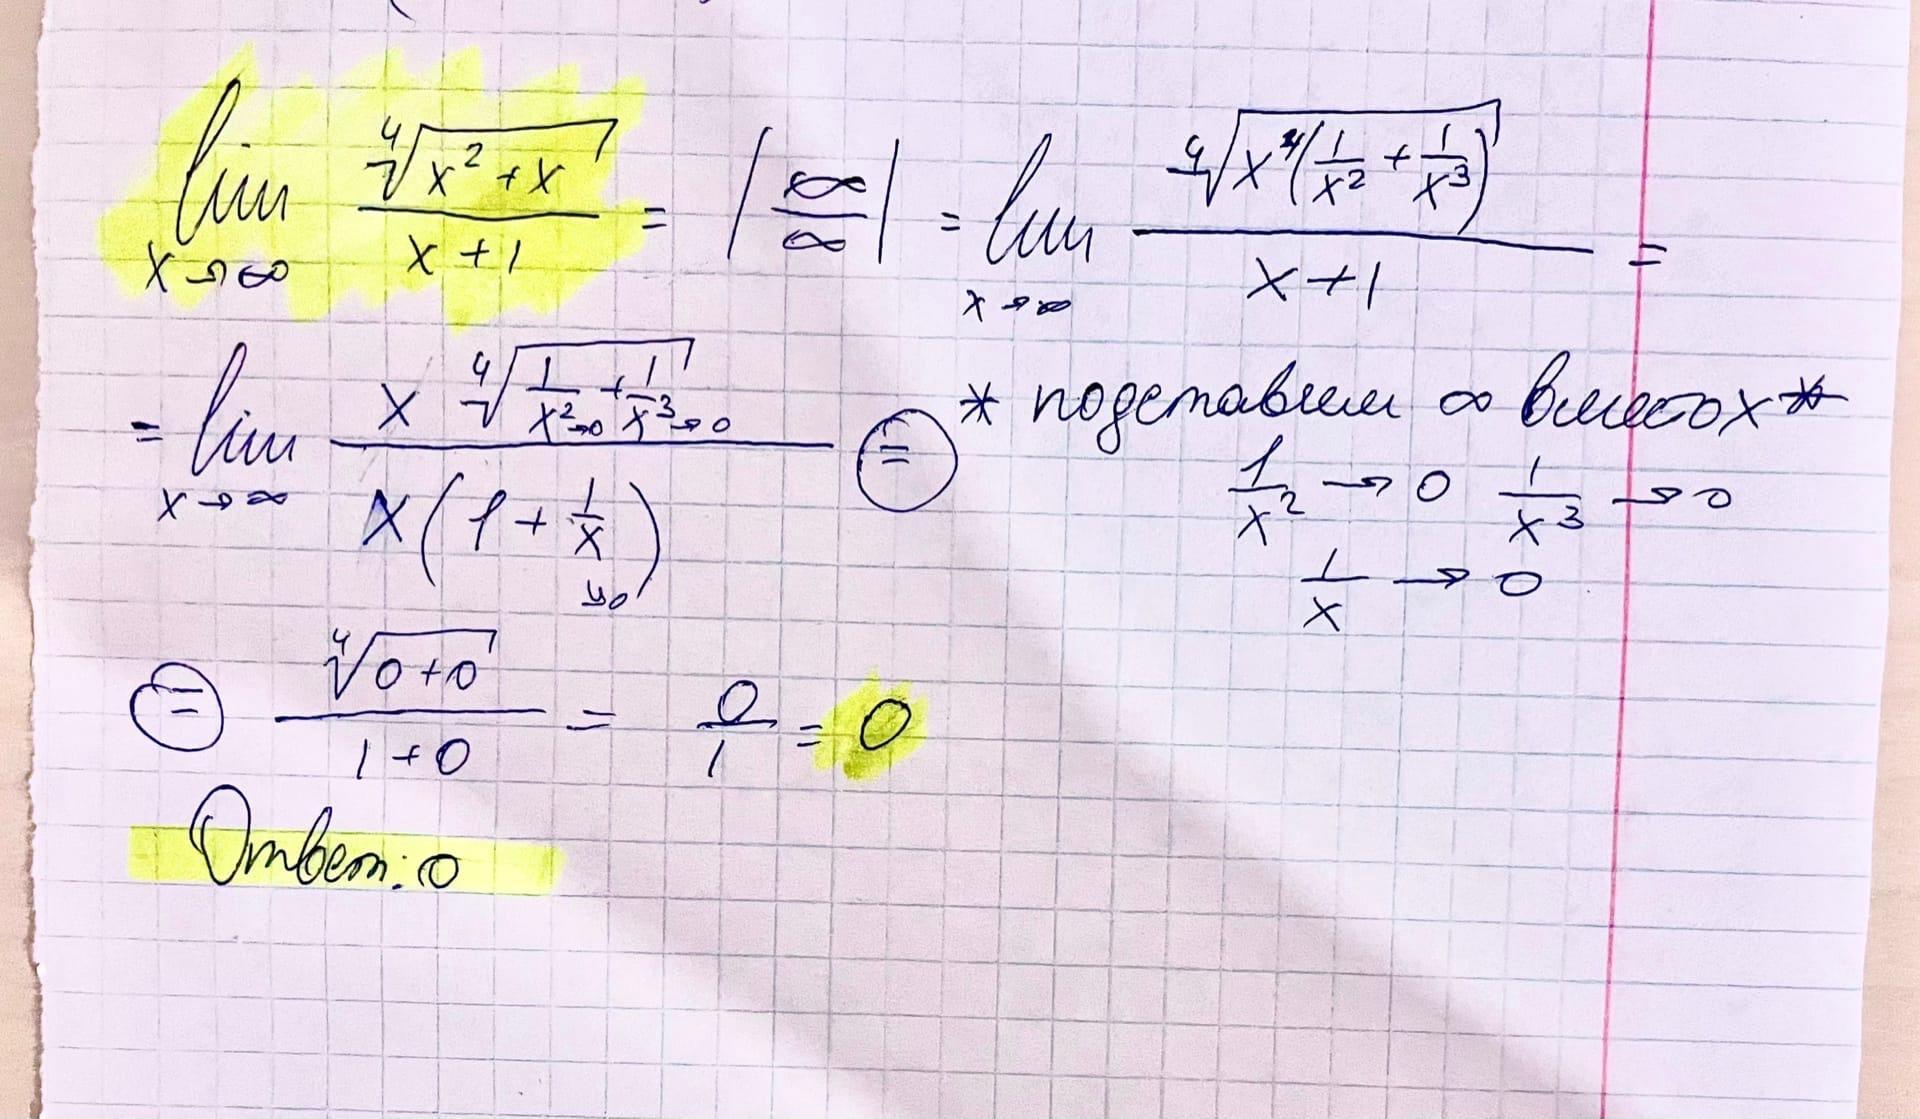 lim x→∞ ∜(x² + x) / (x + 1) = |∞/∞| = lim x→∞ ∜(x⁴(1/x² + 1/x³)) / (x + 1) =
= lim x→∞ x ∜(1/x²→0 + 1/x³→0) / x(1 + 1/x→0) = * подставим ∞ вместо x *
1/x² → 0 1/x³ → 0
1/x → 0
= ∜(0+0) / (1+0) = 0/1 = 0
Ответ: 0